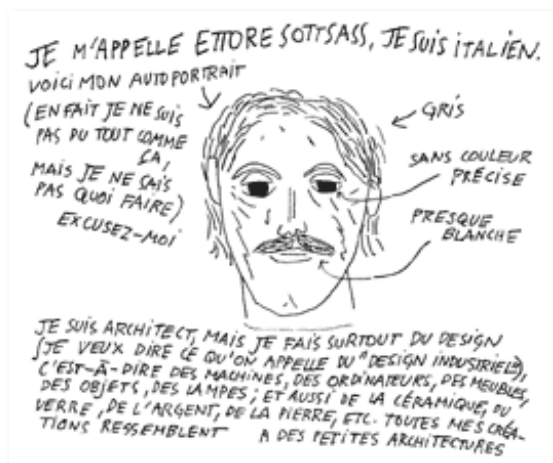 JE M'APPELLE ETTORE SOTTSASS, JE SUIS ITALIEN.
VOICI MON AUTOPORTRAIT
(EN FAIT JE NE SUIS
PAS DU TOUT COMME
ÇA,
MAIS JE NE SAIS
PAS QUOI FAIRE)
EXCUSEZ-MOI
GRIS
SANS COULEUR
PRÉCISE
PRESQUE
BLANCHE
JE SUIS ARCHITECT, MAIS JE FAIS SURTOUT DU DESIGN
(JE VEUX DIRE CE QU'ON APPELLE DU "DESIGN INDUSTRIEL"),
C'EST-À-DIRE DES MACHINES, DES ORDINATEURS, DES MEUBLES,
DES OBJETS, DES LAMPES; ET AUSSI DE LA CÉRAMIQUE, DU
VERRE, DE L'ARGENT, DE LA PIERRE, ETC. TOUTES MES CRÉA-
TIONS RESSEMBLENT A DES PETITES ARCHITECTURES